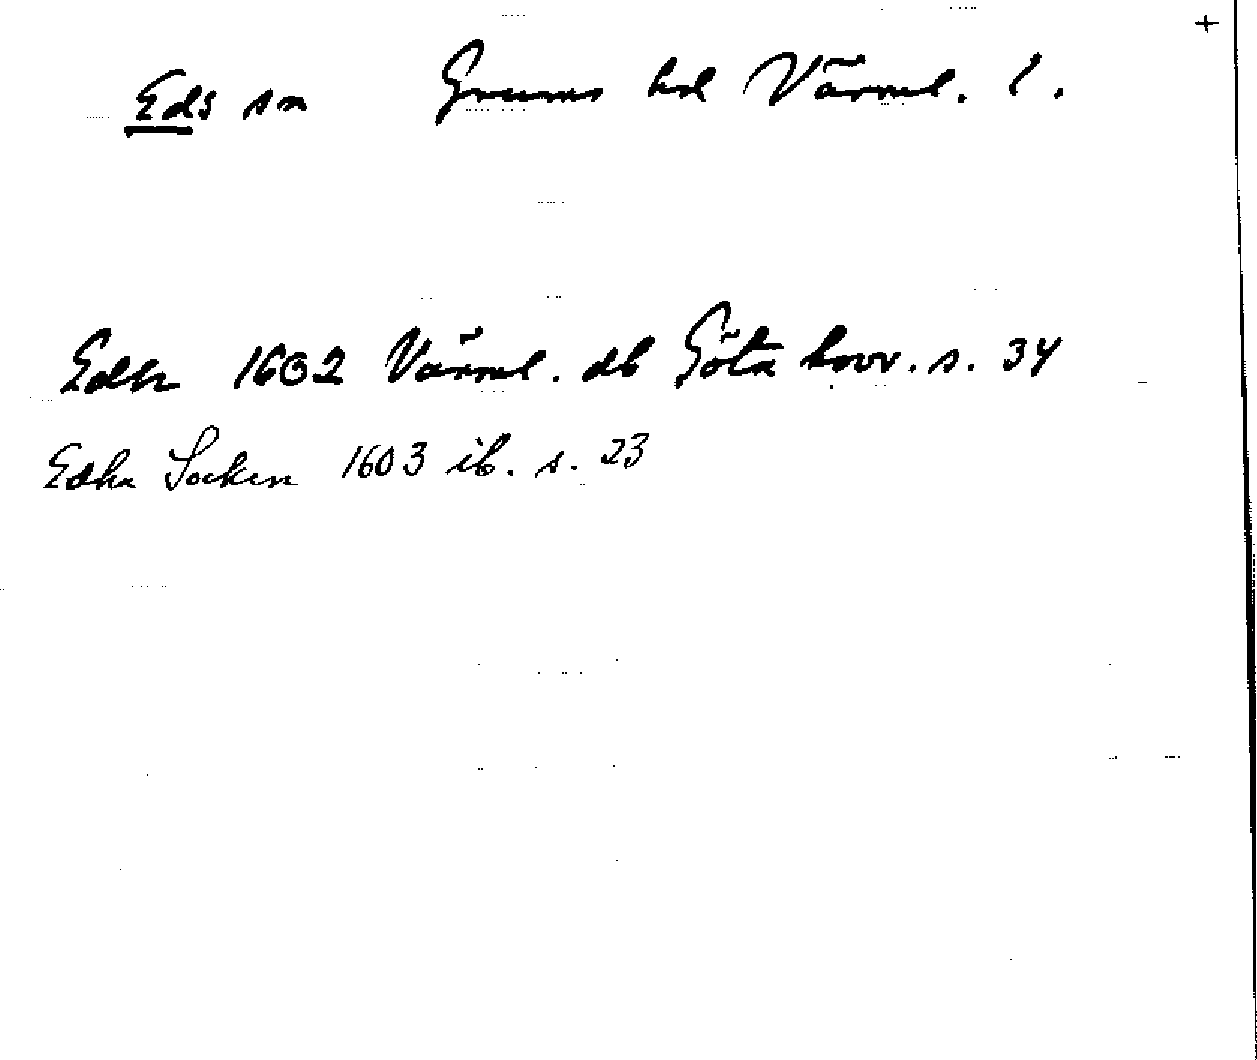 +
Eds sn Grums hd Värml. l.
Edh 1602 Värml. db Göta hovr. s. 34
Edha Socken 1603 ib. s. 23